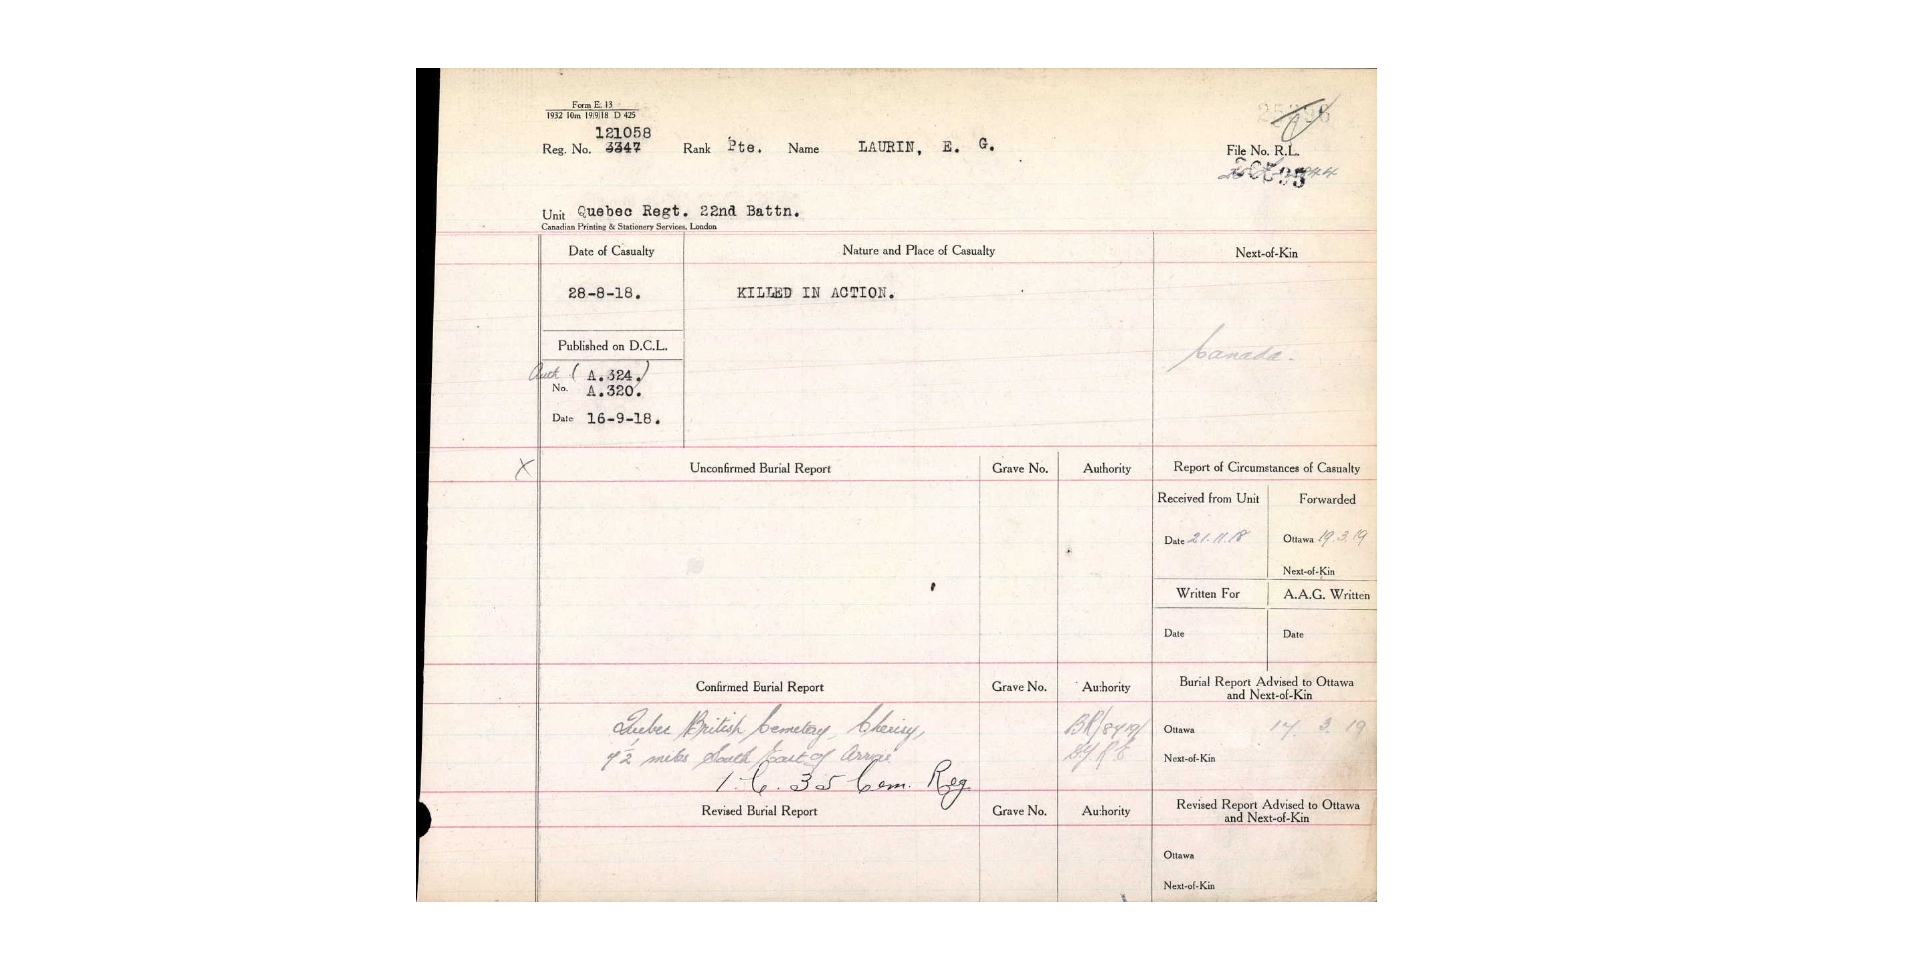 Form E. 13
1932 10m 19/9/18 D 425
121058
Reg. No. 3347 Rank Pte. Name LAURIN, E. G.
File No. R.L.
Unit Quebec Regt. 22nd Battn.
Canadian Printing & Stationery Services, London
Date of Casualty Nature and Place of Casualty Next-of-Kin
28-8-18. KILLED IN ACTION.
Published on D.C.L.
Canada.
Auth ( A.324.)
No. A.320.
Date 16-9-18.
X Unconfirmed Burial Report Grave No. Authority Report of Circumstances of Casualty
Received from Unit Forwarded
Date 21.11.18 Ottawa 19.3.19
Next-of-Kin
Written For A.A.G. Written
Date Date
Confirmed Burial Report Grave No. Authority Burial Report Advised to Ottawa
and Next-of-Kin
Quebec British Cemetery, Cherisy,
Ottawa 17 3 19
7½ miles South East of Arras
Next-of-Kin
1. C. 35 Cem. Reg
Revised Burial Report Grave No. Authority Revised Report Advised to Ottawa
and Next-of-Kin
Ottawa
Next-of-Kin